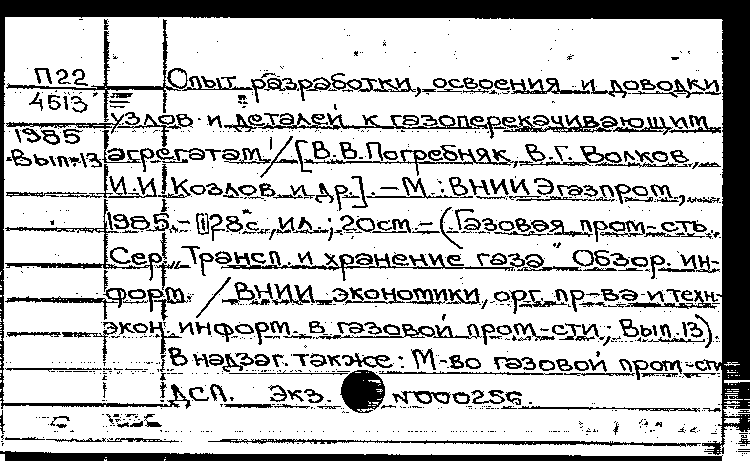 П22
4513
1985
Вып.13
Опыт разработки, освоения и доводки
узлов и деталей к газоперекачивающим
агрегатам / [В.В.Погребняк, В.Г. Волков,
И.И. Козлов и др.]. – М.: ВНИИЭгазпром,
1985. – 28 с., ил.; 20 cm – (Газовая пром-сть.
Сер. „Трансп. и хранение газа" Обзор. ин-
форм. / ВНИИ экономики, орг. пр-ва и техн.-
экон. информ. в газовой пром-сти; Вып. 13).
В надзаг. также: М-во газовой пром-сти
ДСП. Экз. N 000256.